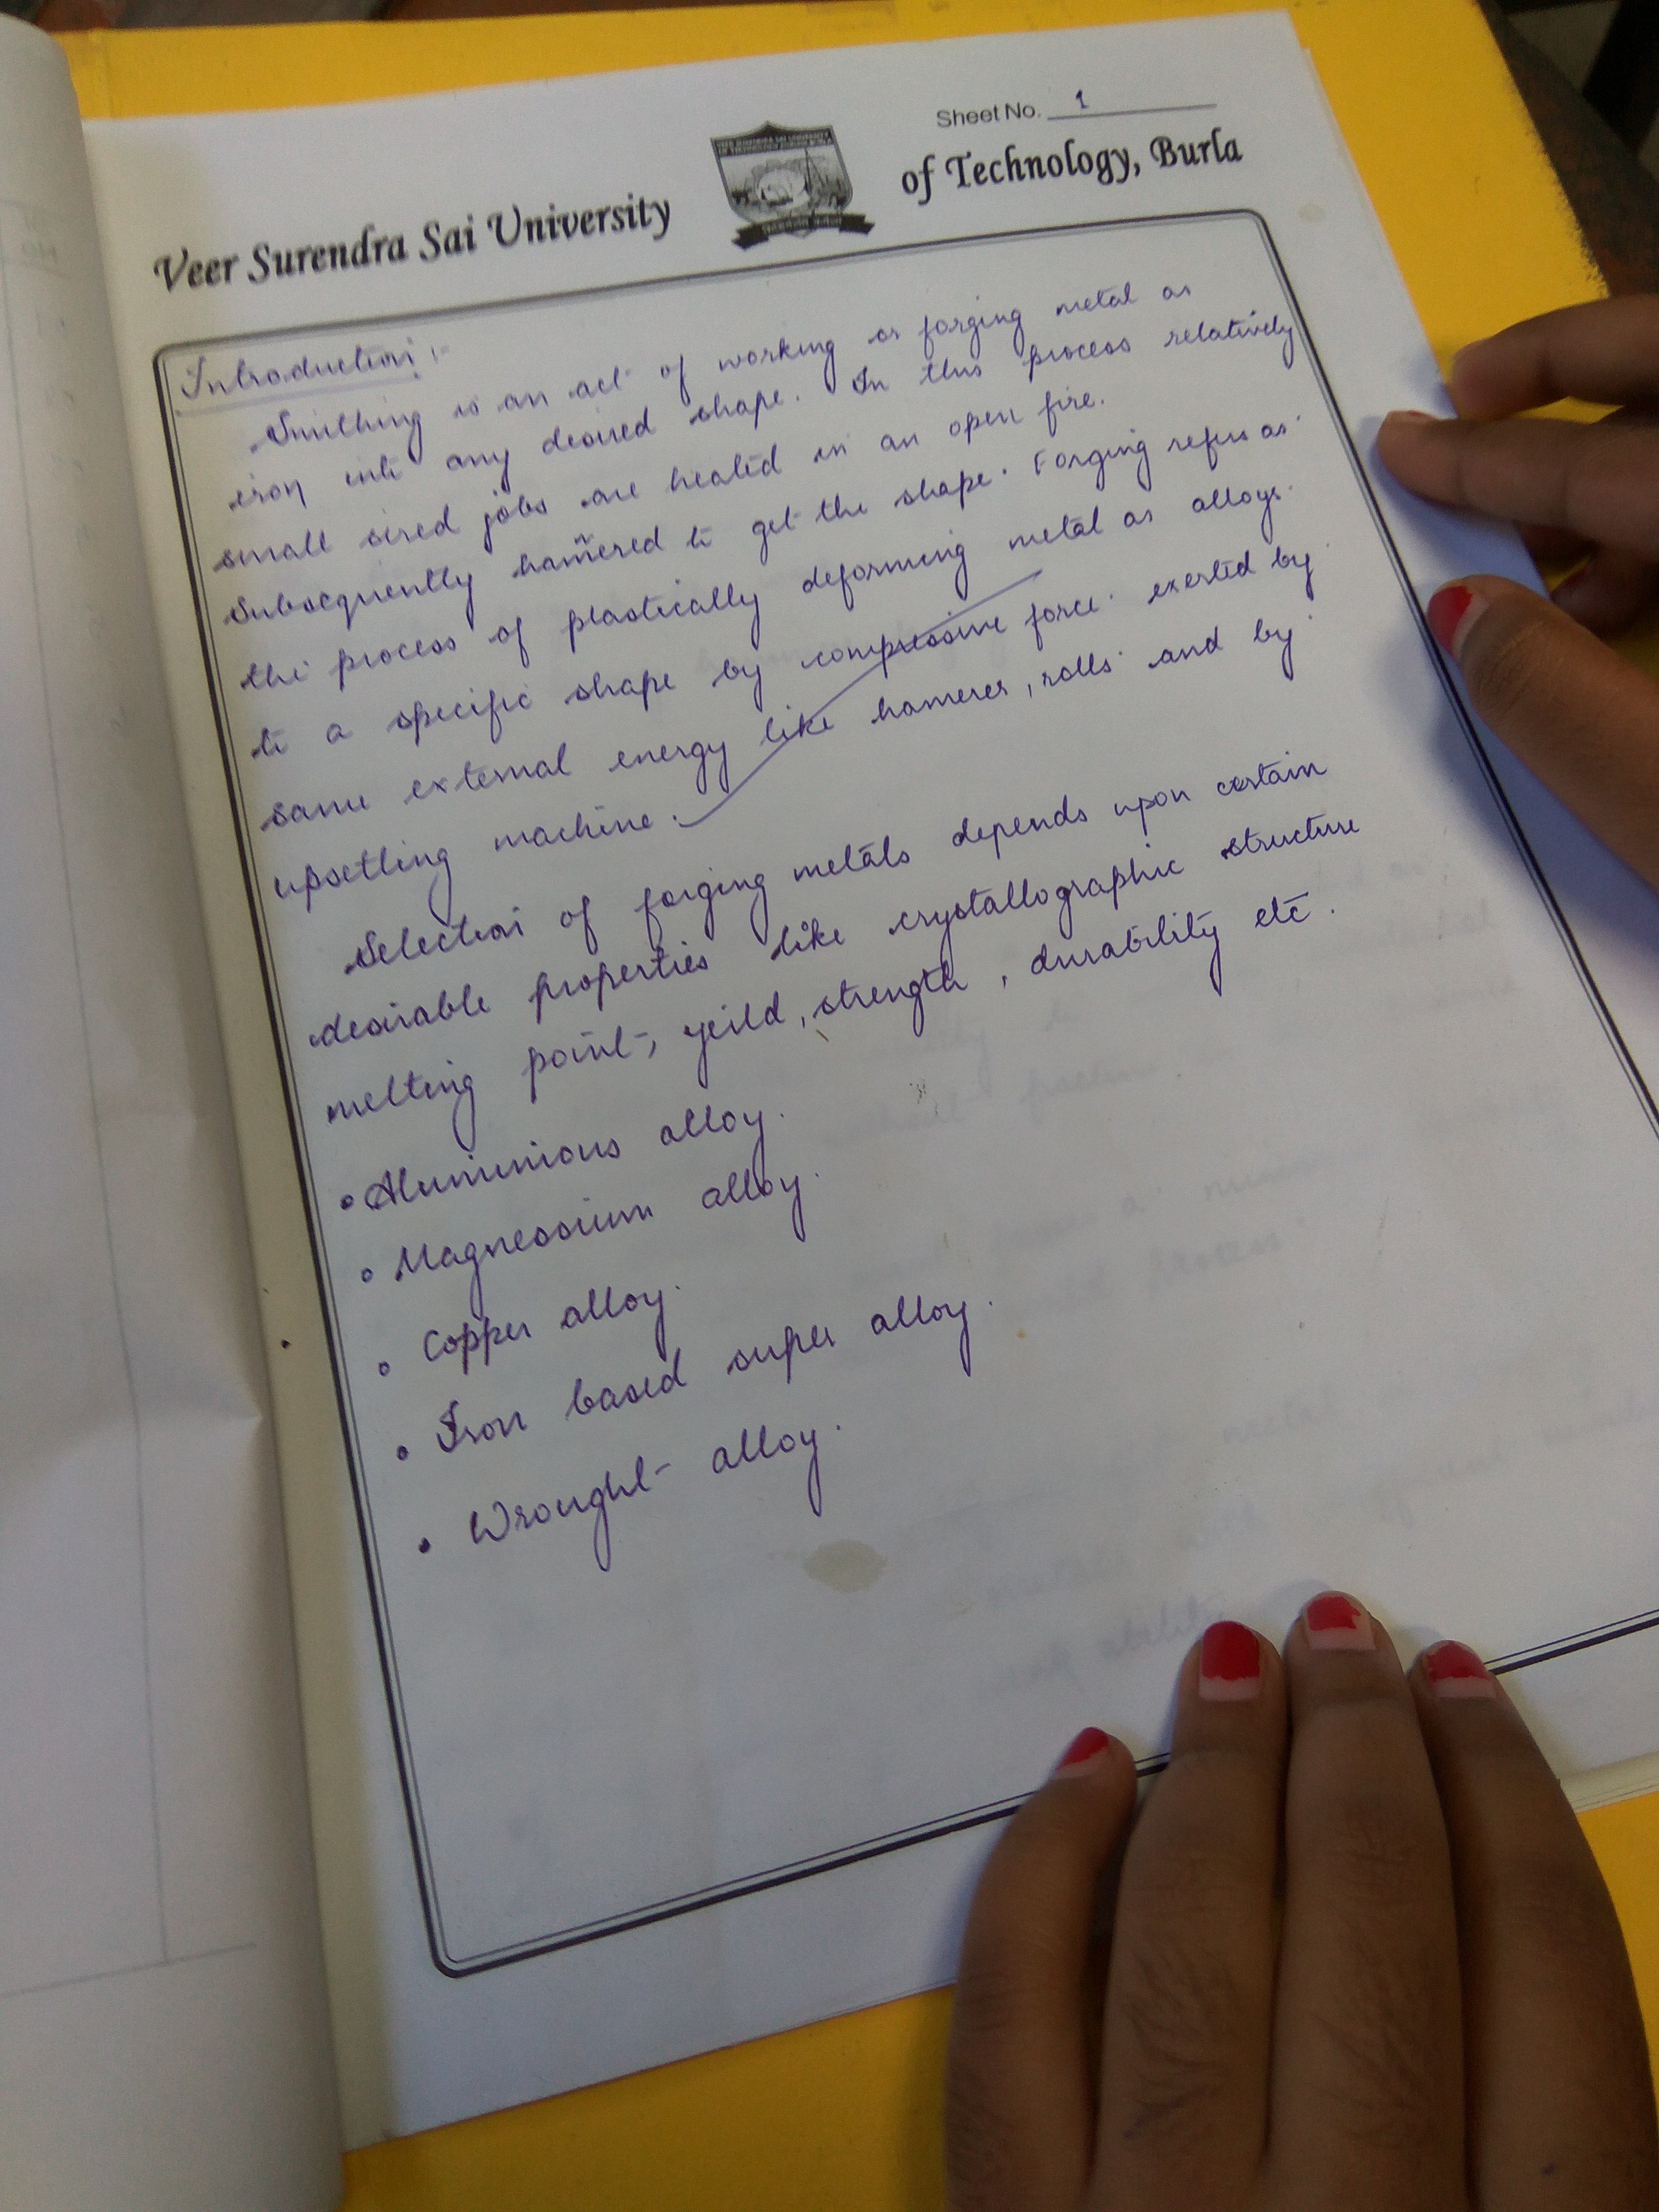 Sheet No. 1
Veer Surendra Sai University of Technology, Burla
Introduction :-
Smithing is an act of working or forging metal or
iron into any desired shape. In this process relatively
small sized jobs are heated in an open fire.
Subsequently hamered to get the shape. Forging refers as
the process of plastically deforming metal or alloys
to a specific shape by compressive force exerted by
same external energy like hamerer, rolls and by
upsetting machine.
Selection of forging metals depends upon certain
desirable properties like crystallographic structure
melting point, yeild, strength, durability etc.
• Aluminious alloy.
• Magnessium alloy.
• Copper alloy.
• Iron based super alloy.
• Wrought alloy.